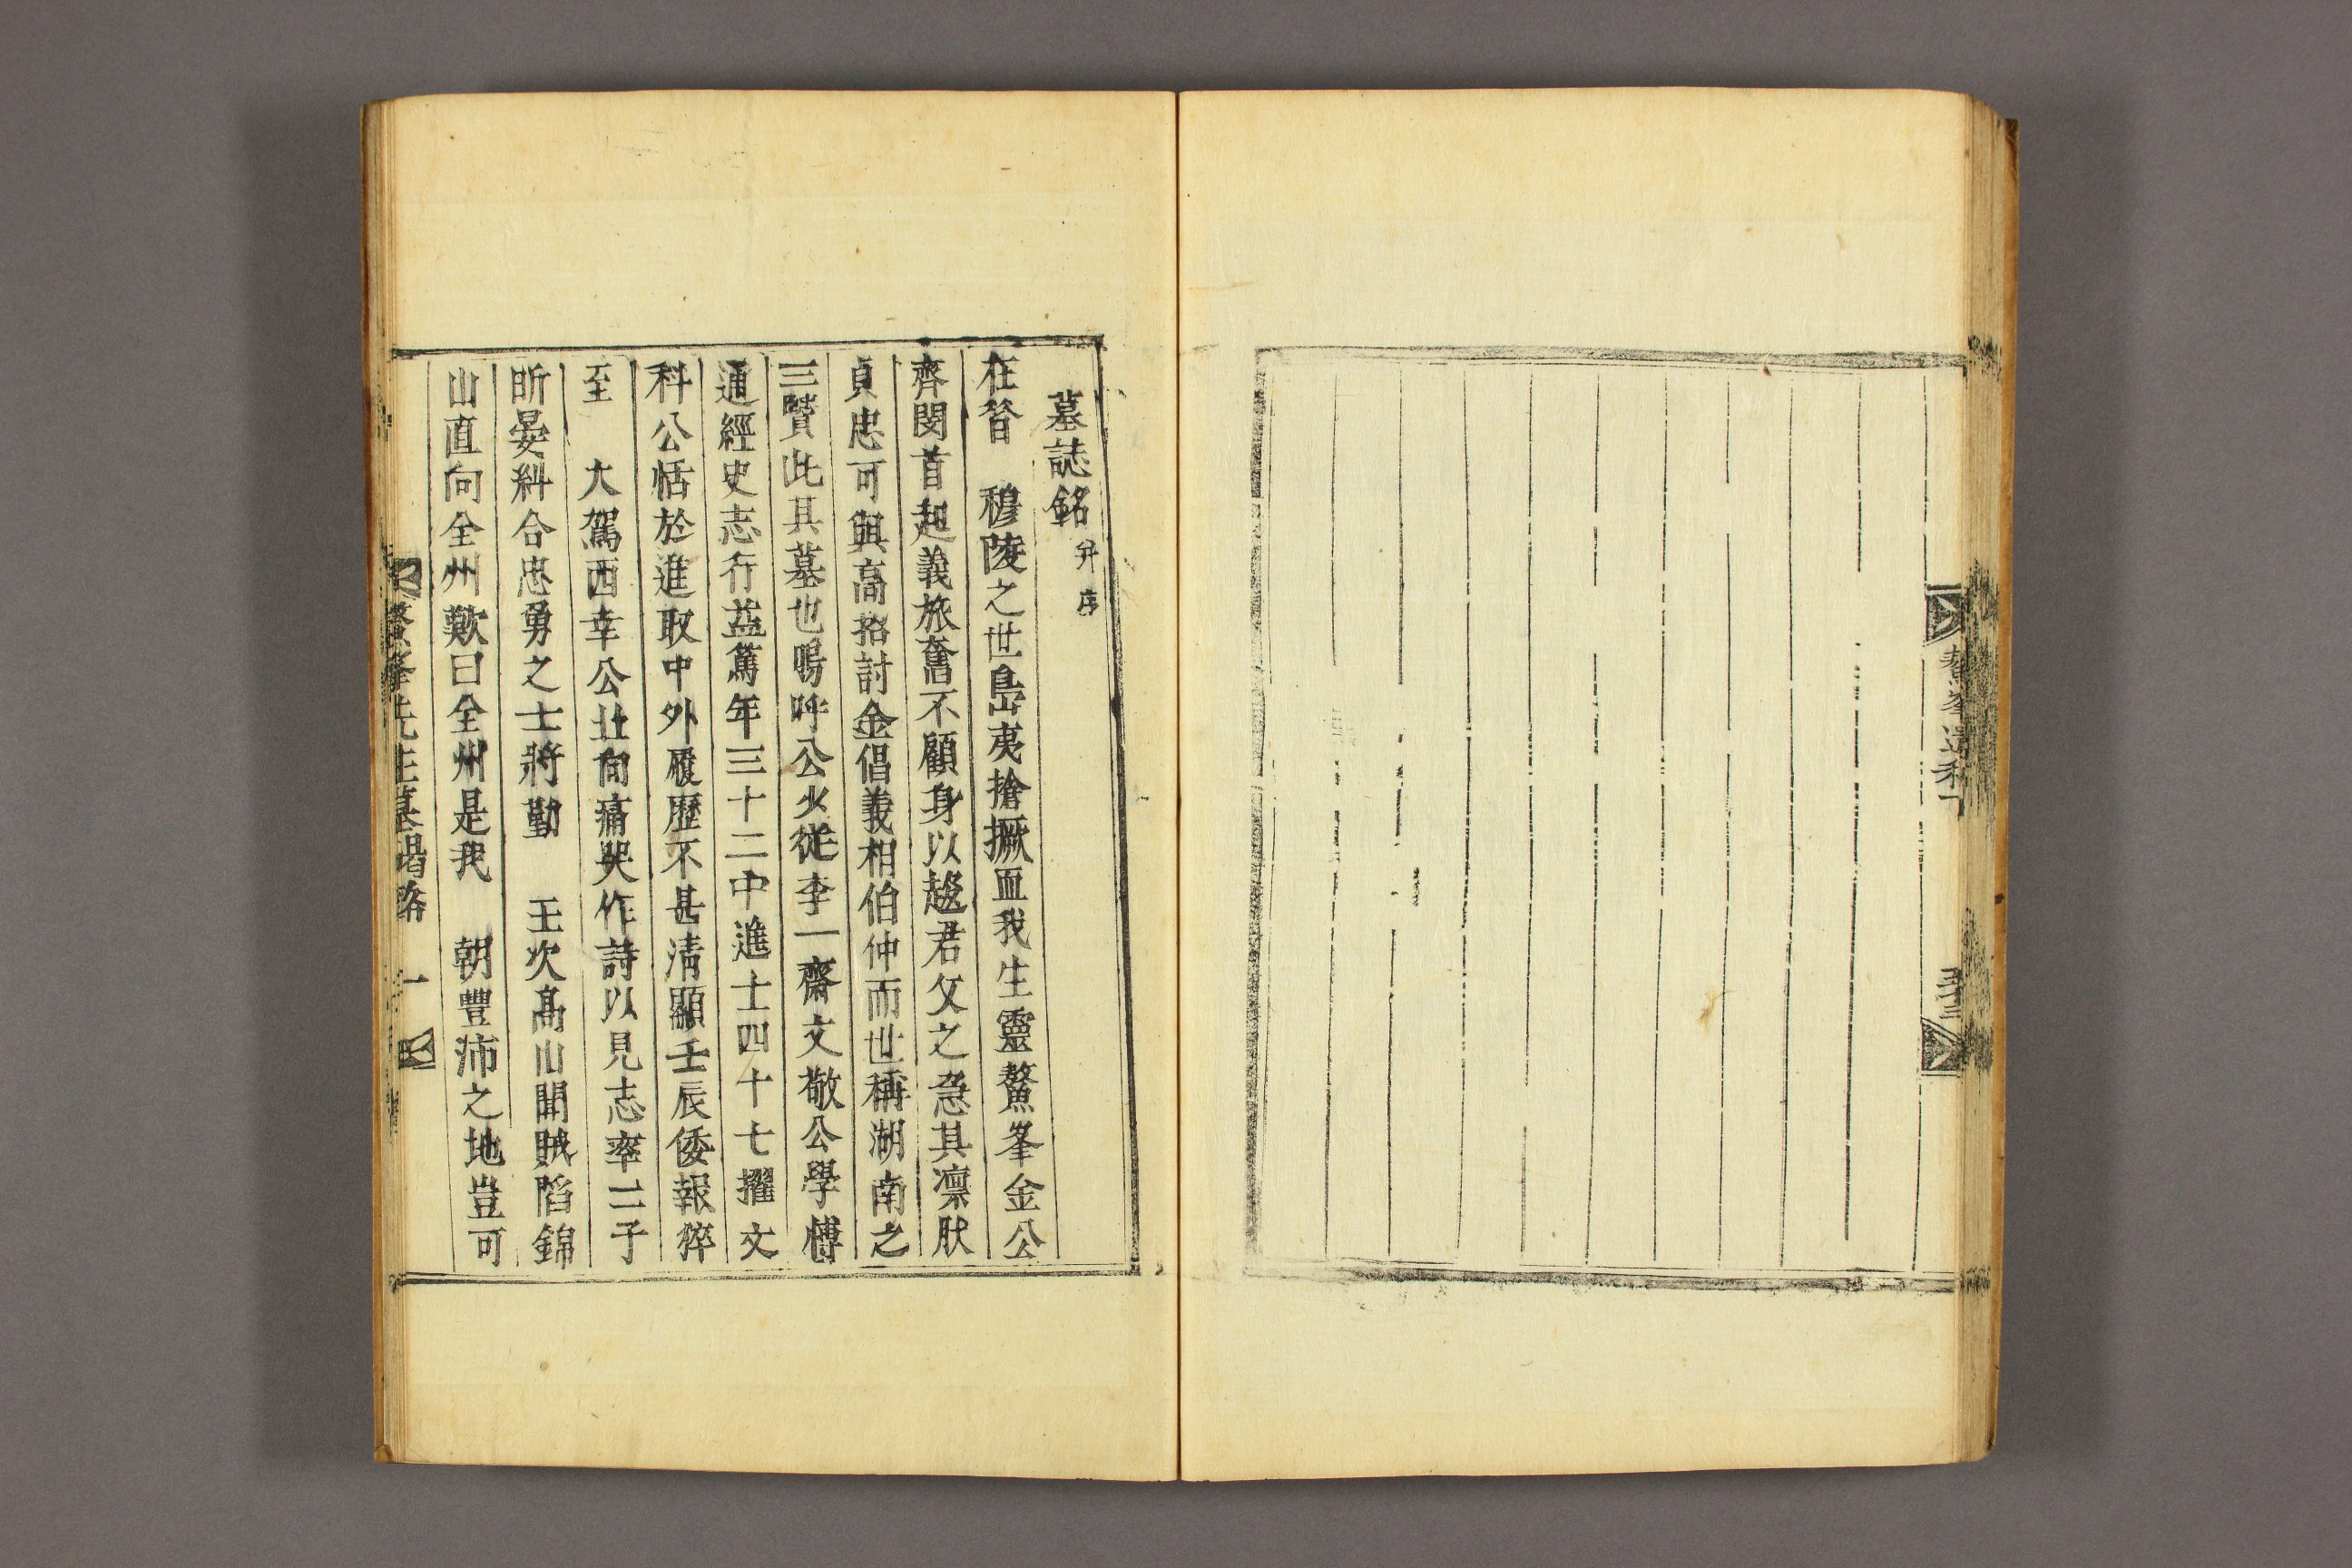 鰲峯遺稿下
墓誌銘 并序
在昝 穆陵之世島夷搶攧血我生靈鰲峯金公
齊閔首起義旅奮不顧身以趍君父之急其凛肰
貞忠可與高招討金倡義相伯仲而世稱湖南之
三賢此其墓也嗚呼公少從李一齋文敬公學博
通經史志行益篤年三十二中進士四十七擢文
科公恬於進取中外履歷不甚淸顯壬辰倭報猝
至 大駕西幸公北向痛哭作詩以見志率二子
昕晏糾合忠勇之士將勤 王次高山聞賊陷錦
山直向全州歎曰全州是我 朝豐沛之地豈可
鰲峯先生墓碣略 一